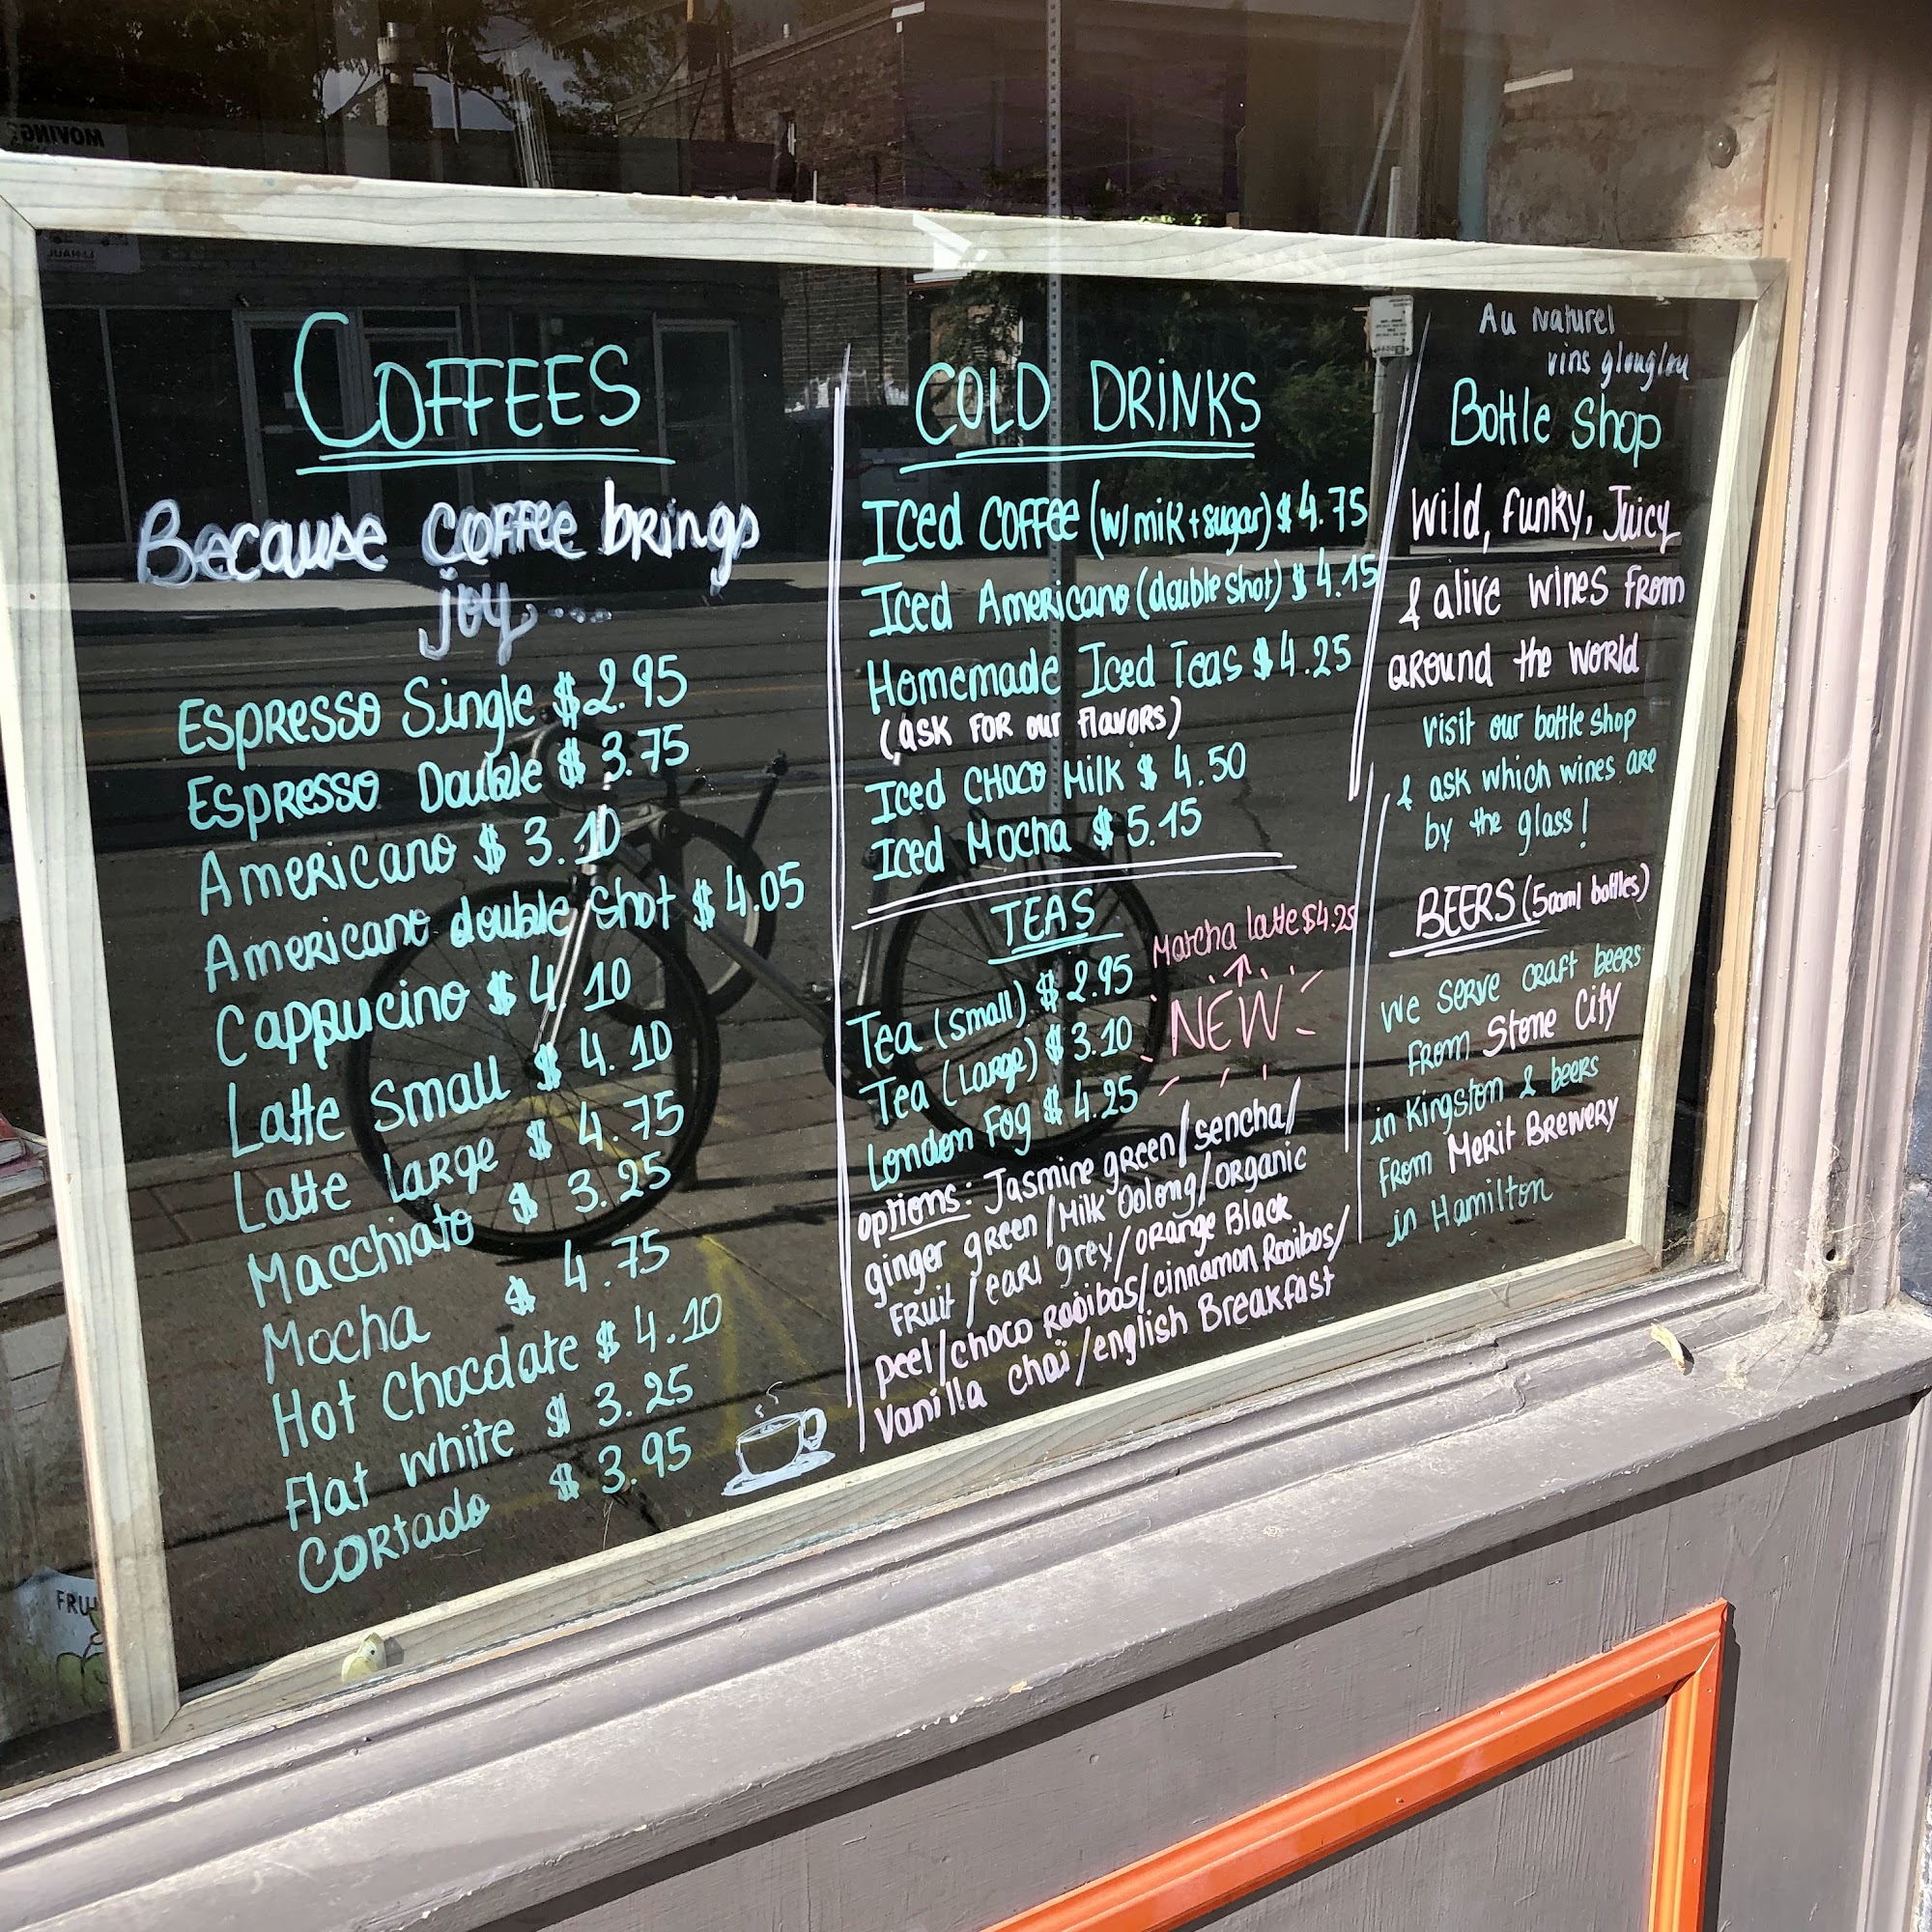 COFFEES
Because coffee brings
joy....
Espresso Single $2.95
Espresso Double $3.75
Americano $3.10
Americano double shot $4.05
Cappucino $4.10
Latte Small $4.10
Latte Large $4.75
Macchiato $3.25
Mocha $4.75
Hot Chocolate $4.10
Flat white $3.25
Cortado $3.95
COLD DRINKS
Iced Coffee (w/ milk + sugar) $4.75
Iced Americano (double shot) $4.15
Homemade Iced Teas $4.25
(ask for our flavors)
Iced CHOCO Milk $4.50
Iced Mocha $5.15
TEAS
Matcha latte $4.25
NEW
Tea (small) $2.95
Tea (Large) $3.10
London Fog $4.25
options: Jasmine green/sencha/
ginger green/Milk Oolong/organic
Fruit/earl grey/orange Black
peel/choco Rooibos/cinnamon Rooibos/
Vanilla chaï/english Breakfast
Au Naturel
vins glouglou
Bottle Shop
Wild, funky, Juicy
& alive wines from
around the world
Visit our bottle shop
& ask which wines are
by the glass!
BEERS (500ml bottles)
We serve craft beers
from Stone City
in Kingston & beers
from Merit Brewery
in Hamilton
MOVING?
FRU